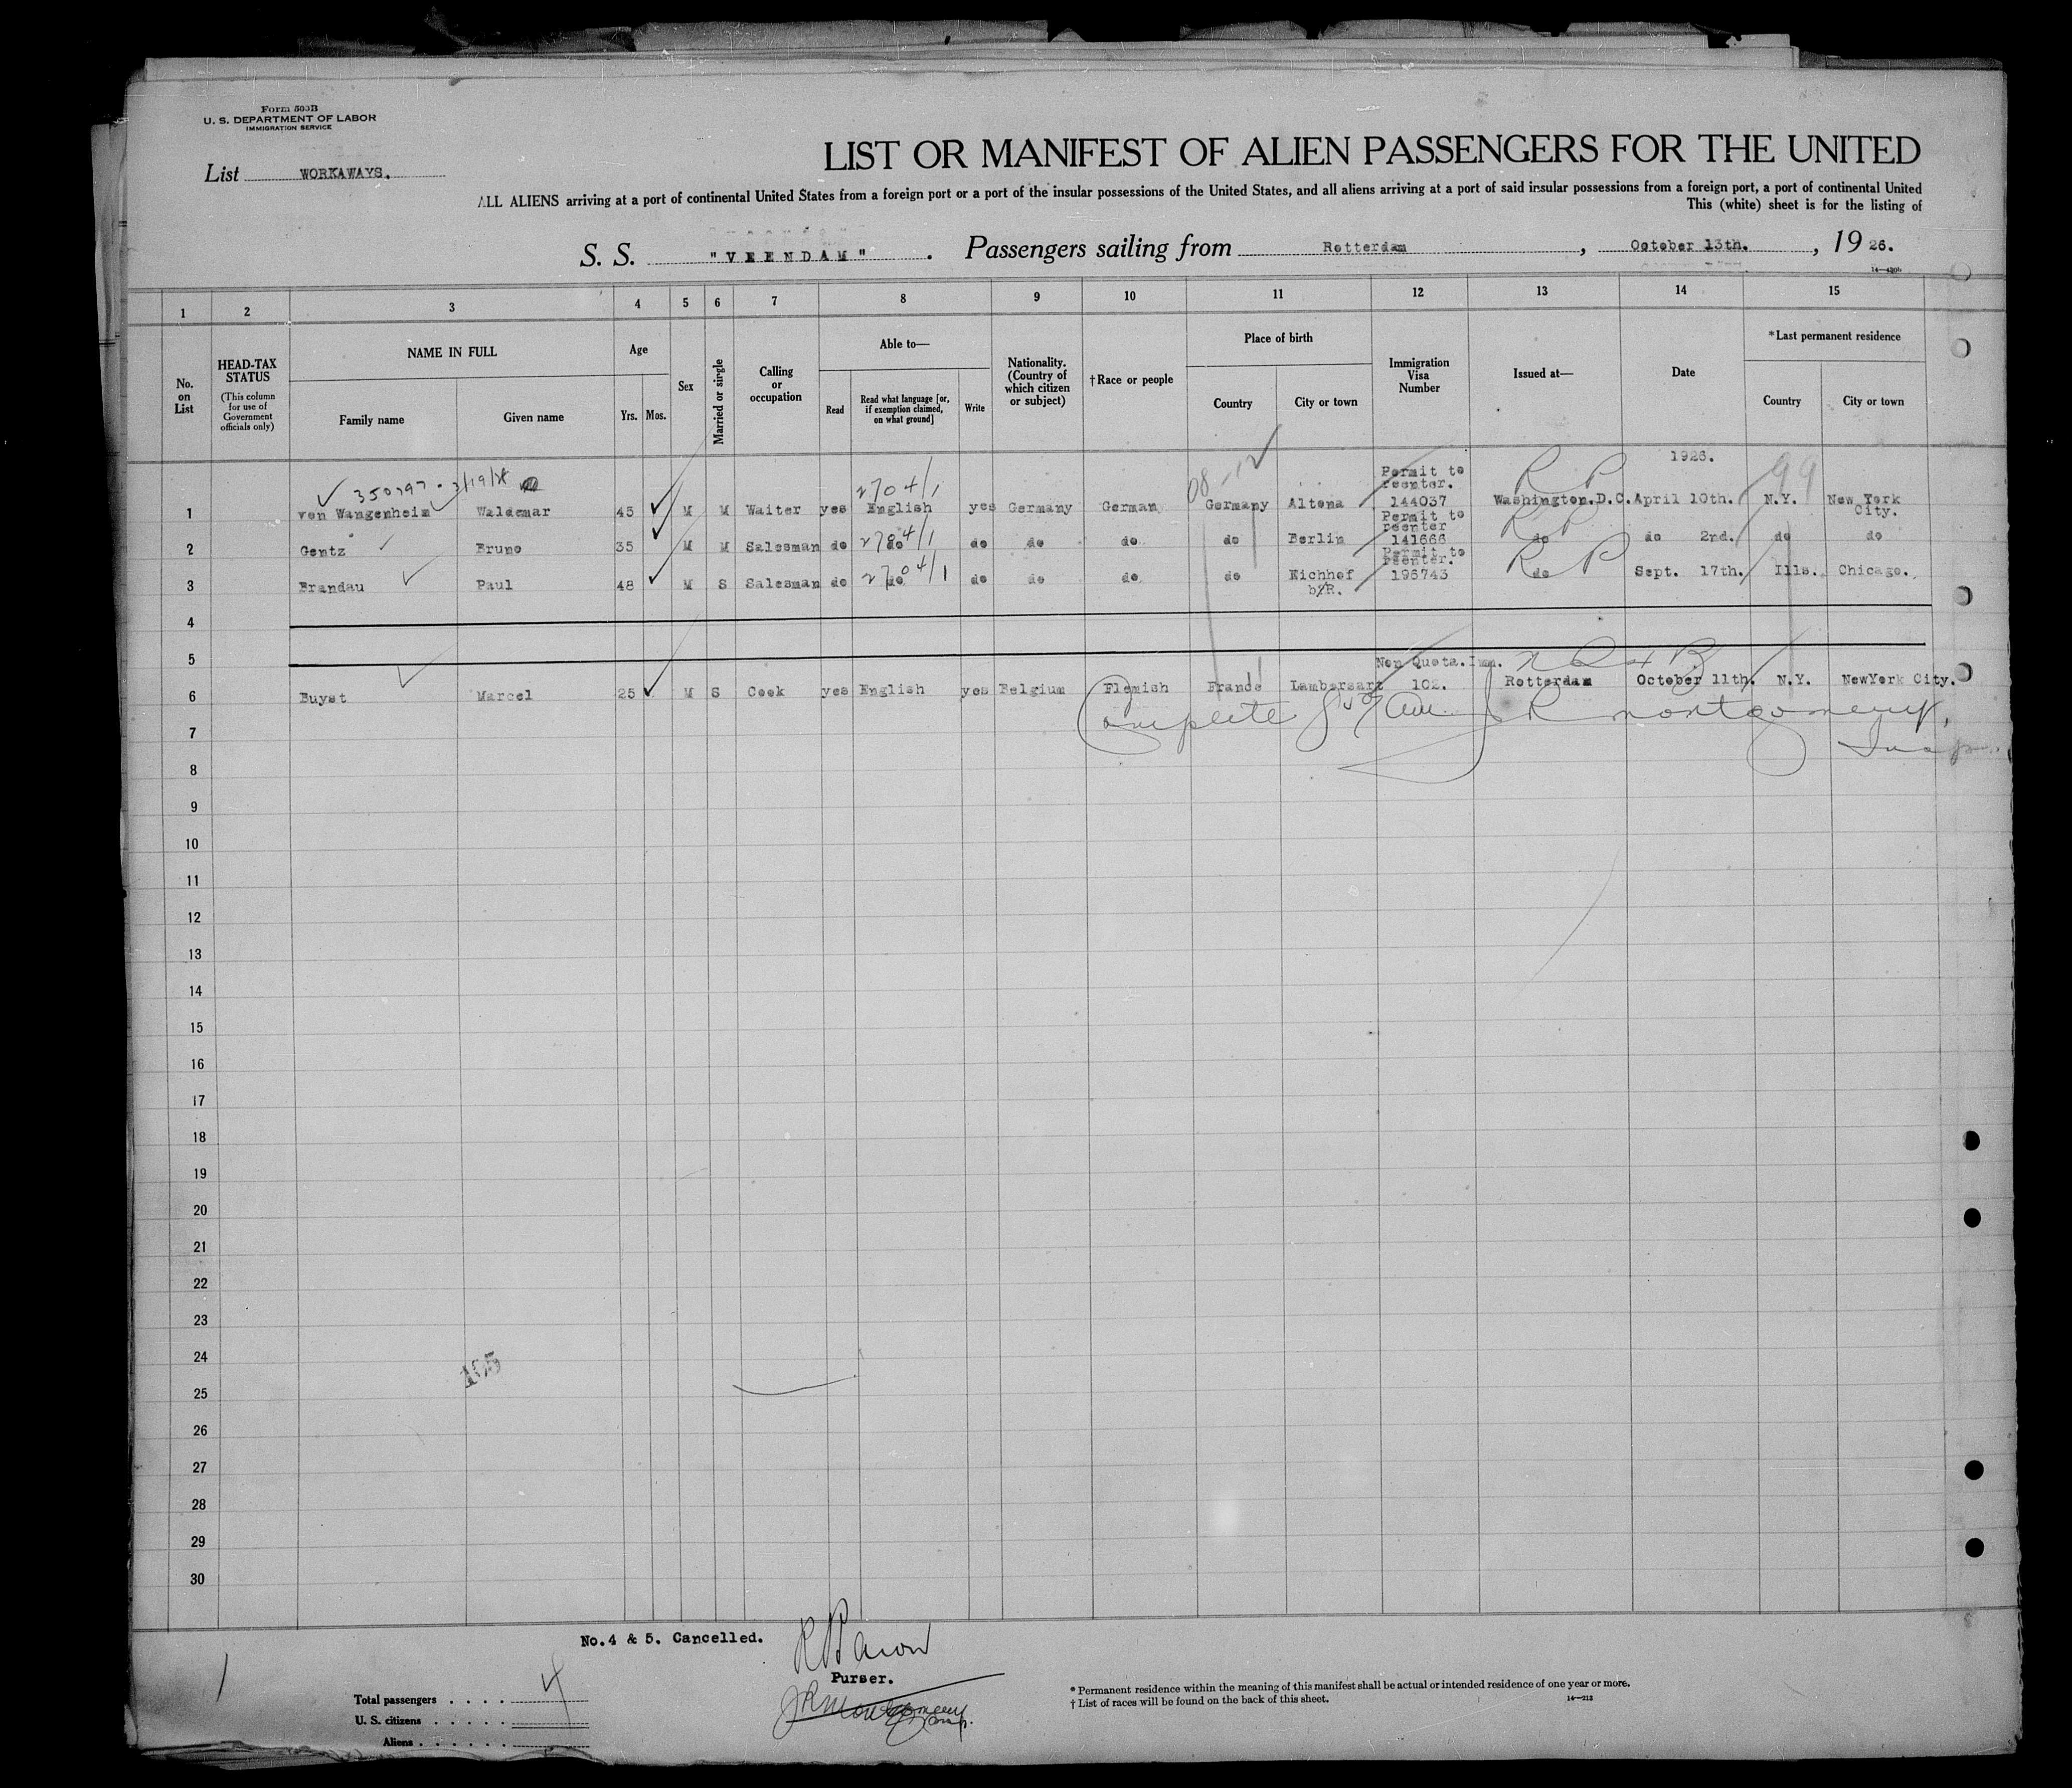 Form 500B
U. S. DEPARTMENT OF LABOR
IMMIGRATION SERVICE
List WORKAWAYS.
LIST OR MANIFEST OF ALIEN PASSENGERS FOR THE UNITED
ALL ALIENS arriving at a port of continental United States from a foreign port or a port of the insular possessions of the United States, and all aliens arriving at a port of said insular possessions from a foreign port, a port of continental United
This (white) sheet is for the listing of
S. S. "VEENDAM". Passengers sailing from Rotterdam, October 13th., 1926.
1 2 3 4 5 6 7 8 9 10 11 12 13 14 15
No. on List
HEAD-TAX STATUS
(This column for use of Government officials only)
NAME IN FULL
Family name Given name
Age
Yrs. Mos.
Sex
Married or single
Calling or occupation
Able to—
Read
Read what language [or, if exemption claimed, on what ground]
Write
Nationality. (Country of which citizen or subject)
†Race or people
Place of birth
Country City or town
Immigration Visa Number
Issued at—
Date
*Last permanent residence
Country City or town
1926.
350797 - 3/19/
2704/1
08-12
Permit to reenter.
R P
99
1 von Wangenheim Waldemar 45 M M Waiter yes English yes Germany German Germany Altona 144037 Washington.D.C. April 10th. N.Y. New York City.
Permit to reenter
R P
2 Gentz Bruno 35 M M Salesman do 2704/1 do do do do do Berlin 141666 do do 2nd. do do
Permit to reenter.
R P
3 Brandau Paul 48 M S Salesman do 2704/1 do do do do do Eichhof b/R. 196743 do Sept. 17th. Ills. Chicago.
4
5
Non Quota.Imm.
6 Buyst Marcel 25 M S Cook yes English yes Belgium Flemish France Lambersart 102. Rotterdam October 11th. N.Y. NewYork City.
Complete JR Montgomery,
Insp.
7
8
9
10
11
12
13
14
15
16
17
18
19
20
21
22
23
24
25
26
27
28
29
30
No.4 & 5. Cancelled.
Purser.
JR Montgomery
Insp.
Total passengers . . . . 4
U. S. citizens . . . . .
Aliens . . . . . .
* Permanent residence within the meaning of this manifest shall be actual or intended residence of one year or more.
† List of races will be found on the back of this sheet.
14—213